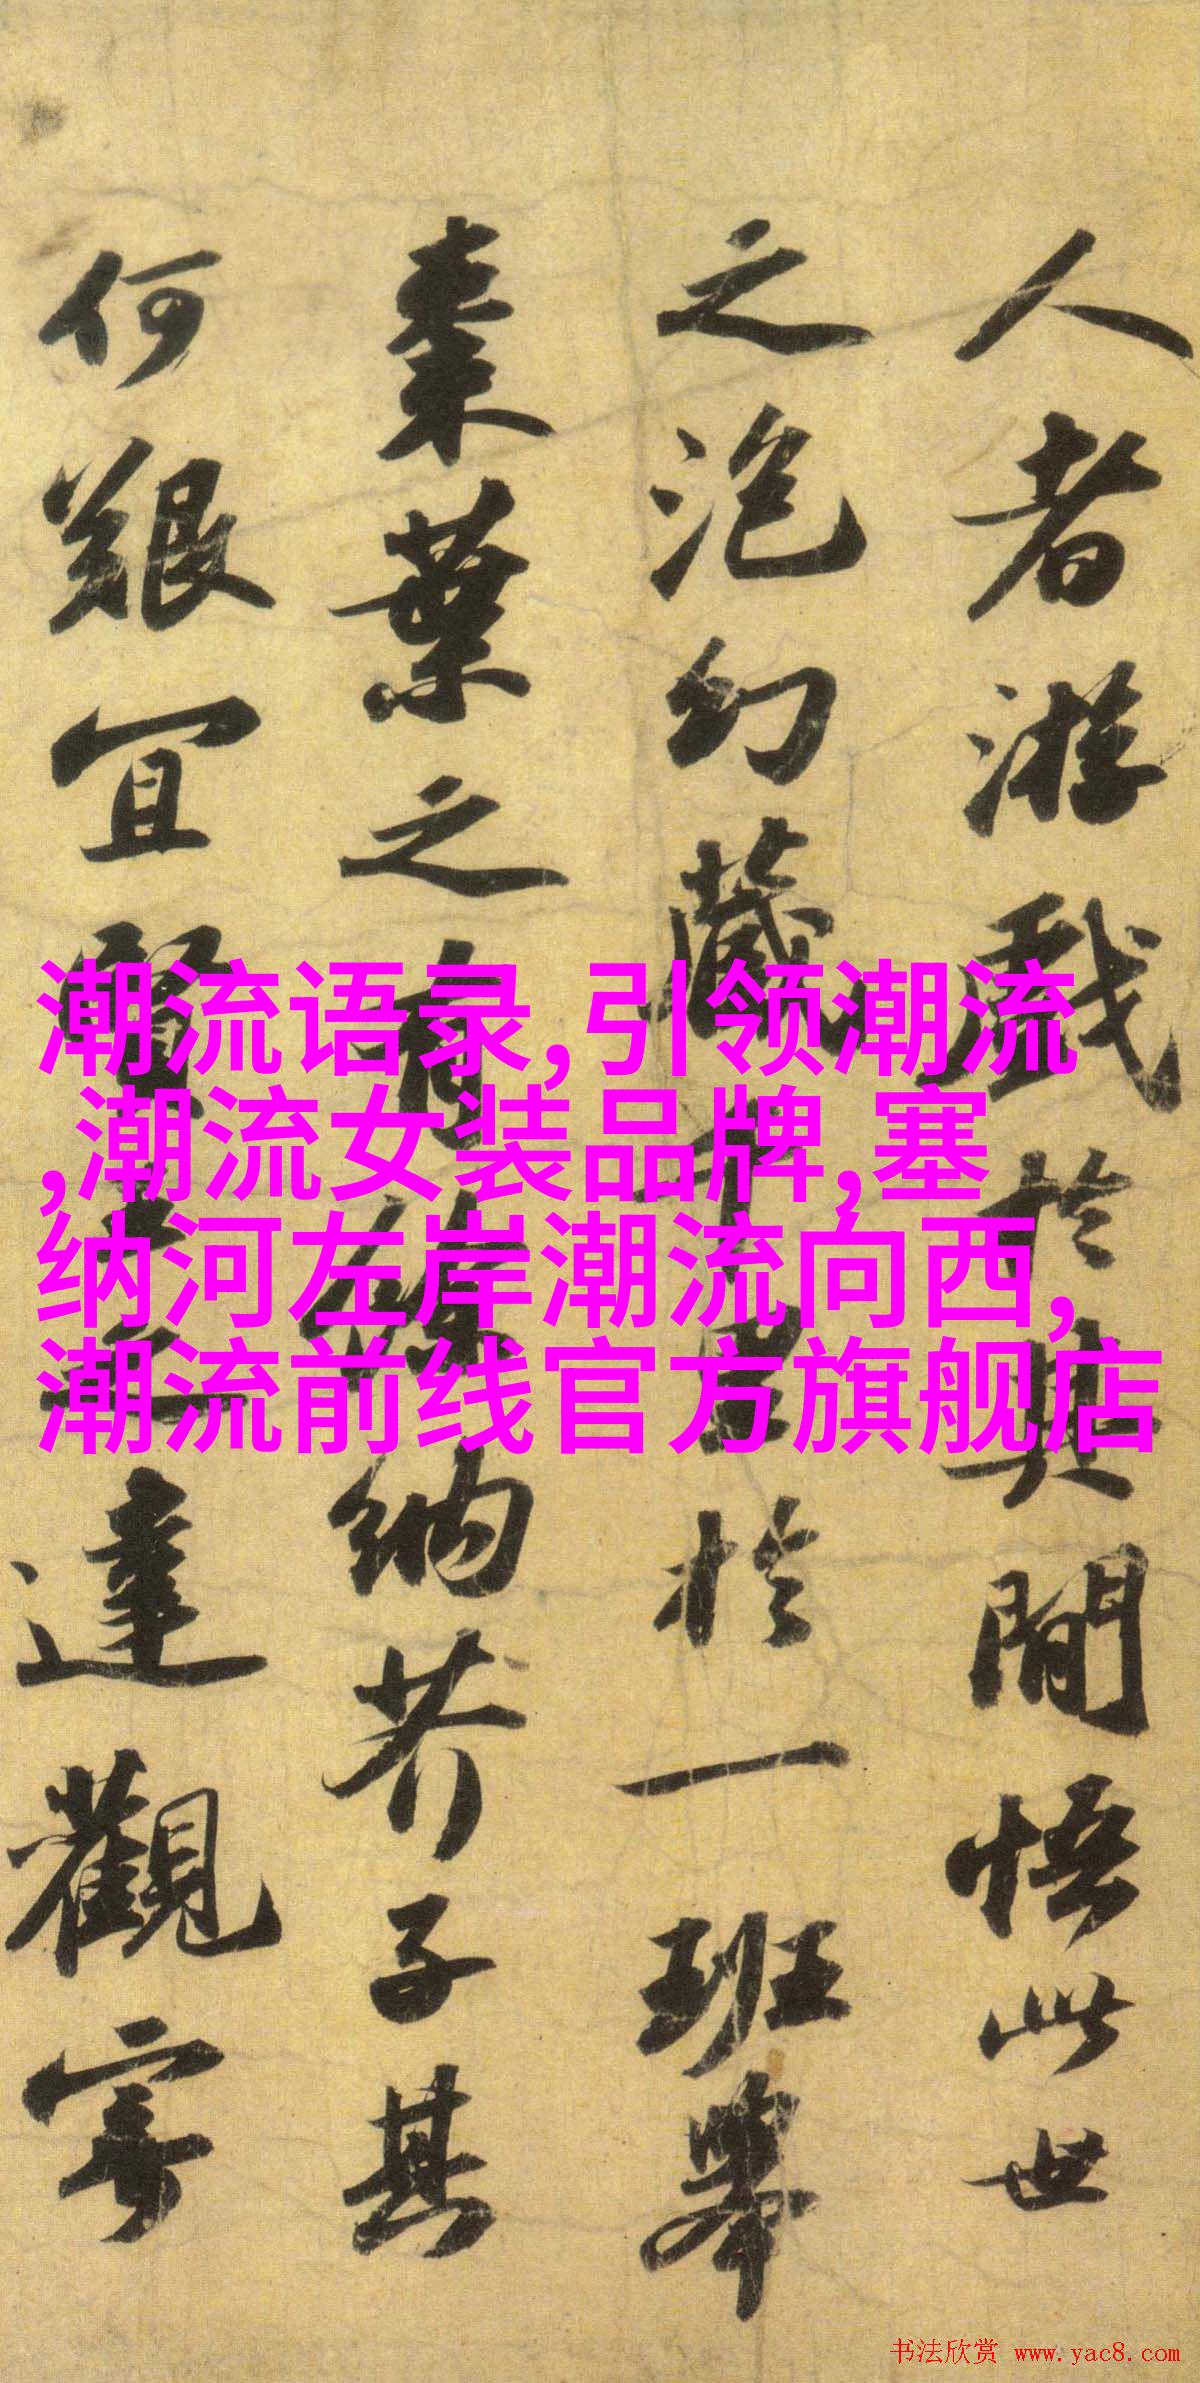 人者游戲於世間悟此世
之泡幻藏千於一班舉
棗葉之有餘納芥子其
何艱宜賢達觀寄
潮流语录,引领潮流
,潮流女装品牌,塞
纳河左岸潮流向西,
潮流前线官方旗舰店
书法欣赏 www.yac8.com